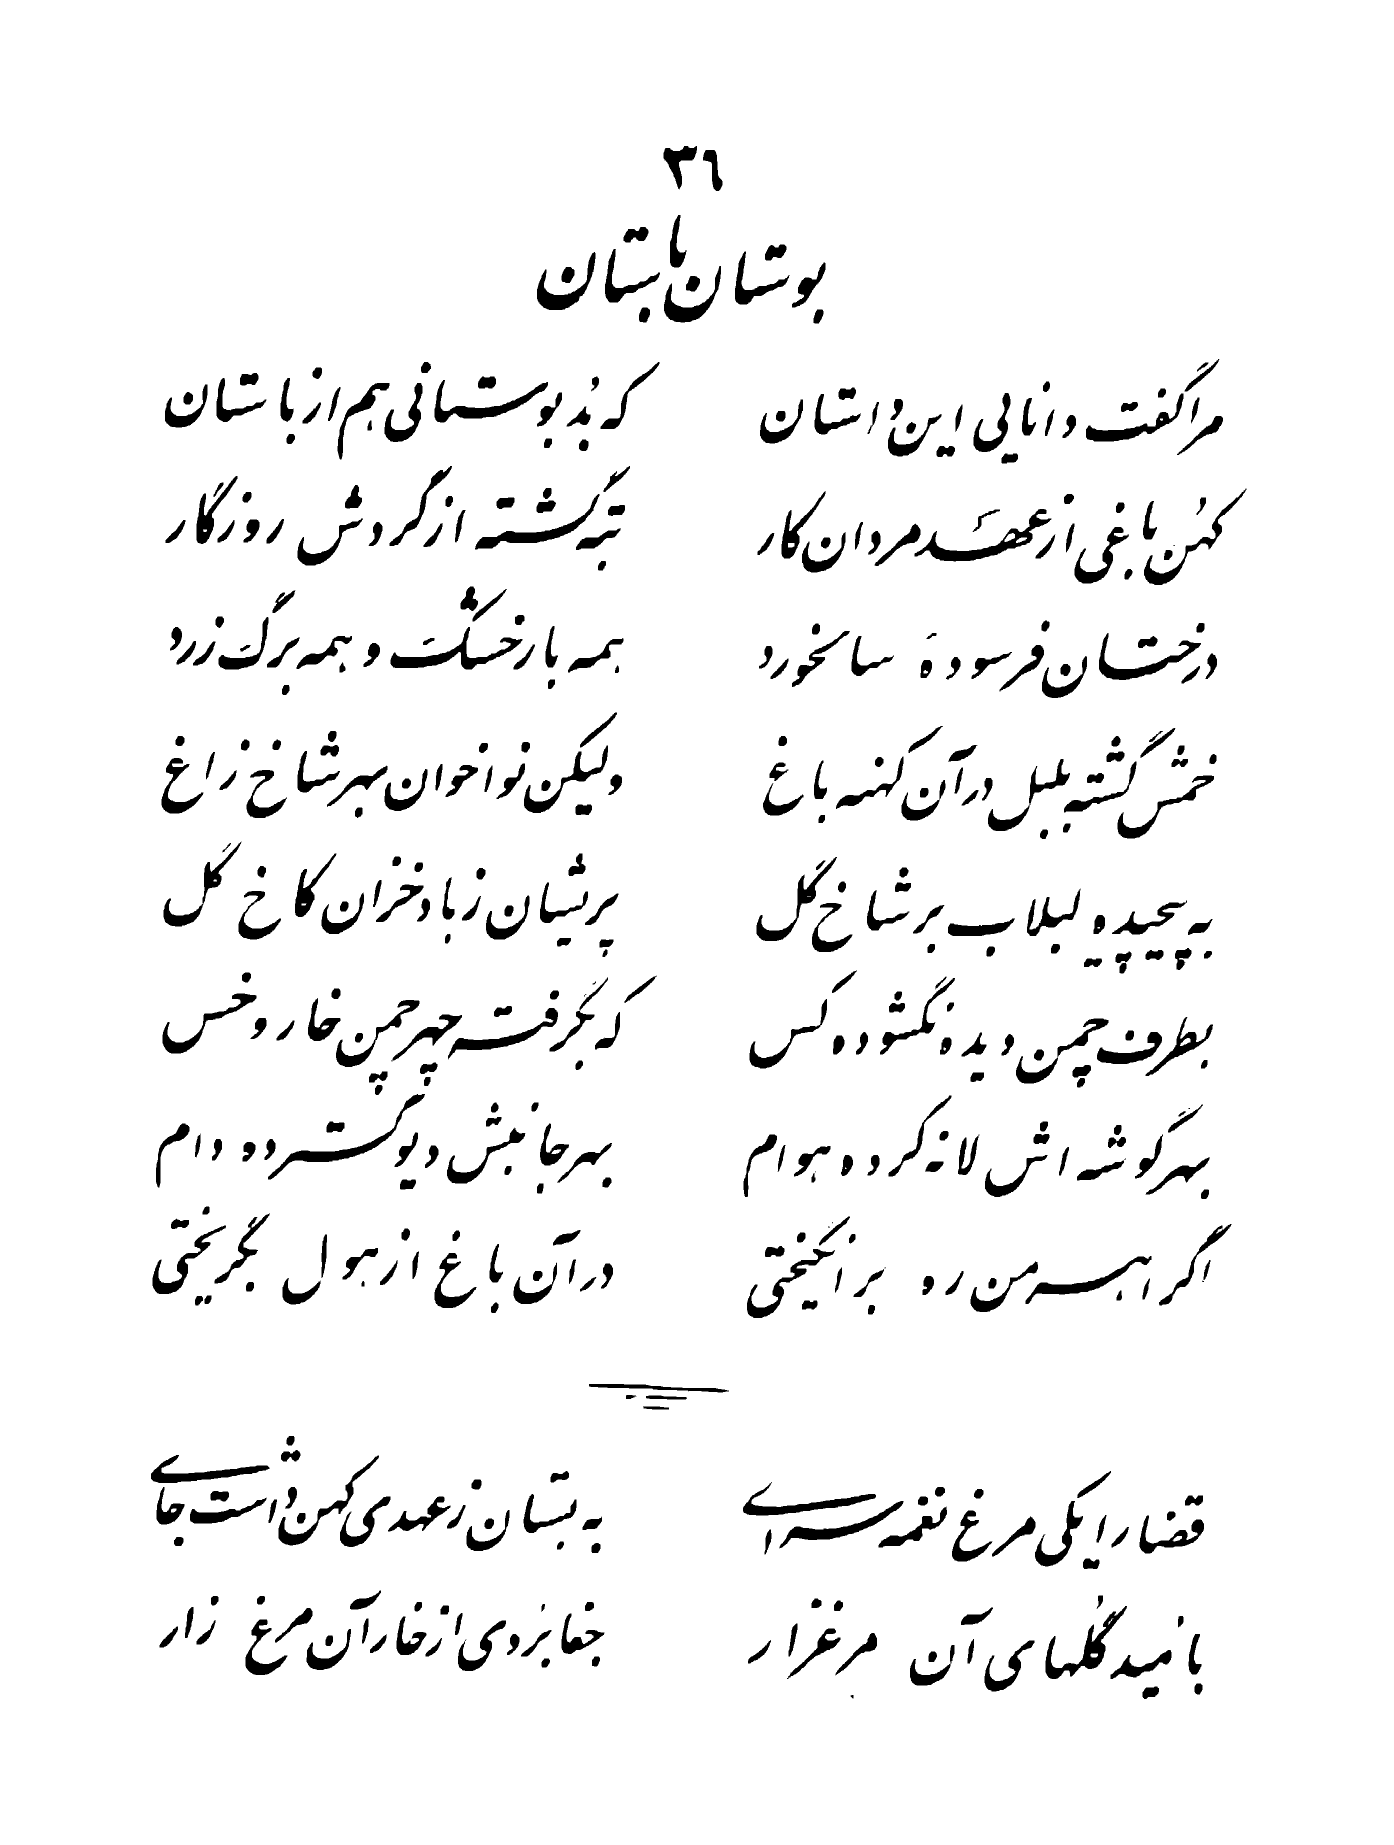 ٣٦
بوستان باستان
مرا گفت دانایی این داستان که بُد بوستانی هم از باستان
کهُن باغی از عهد مردان کار تبه گشته از گردش روزگار
درختان فرسودهٔ سالخورد همه بار خشک و همه برگ زرد
خمش گشته بلبل در آن کهنه باغ ولیکن نواخوان بهر شاخ زاغ
به پیچیده لبلاب بر شاخ گل پریشان ز باد خزان کاخ گل
بطرف چمن دیده نگشوده کس که بگرفته چهر چمن خار و خس
بهر گوشه اش لانه کرده هوام بهر جانبش دیو گسترده دام
اگر اهرمن ره بر انگیختی در آن باغ از هول بگریختی
قضا را یکی مرغ نغمه سرای به بستان ز عهدی کهن داشت جای
بامید گُلهای آن مرغزار جفا بُردی از خار آن مرغ زار